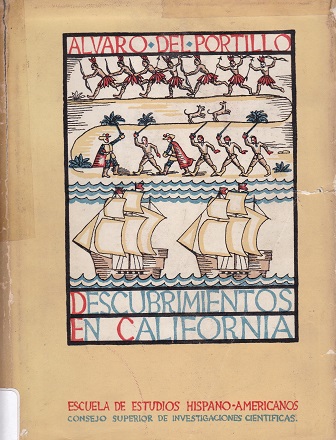 ALVARO·DEL·PORTILLO
DESCUBRIMIENTOS
EN CALIFORNIA
ESCUELA DE ESTUDIOS HISPANO-AMERICANOS
CONSEJO SUPERIOR DE INVESTIGACIONES CIENTIFICAS.